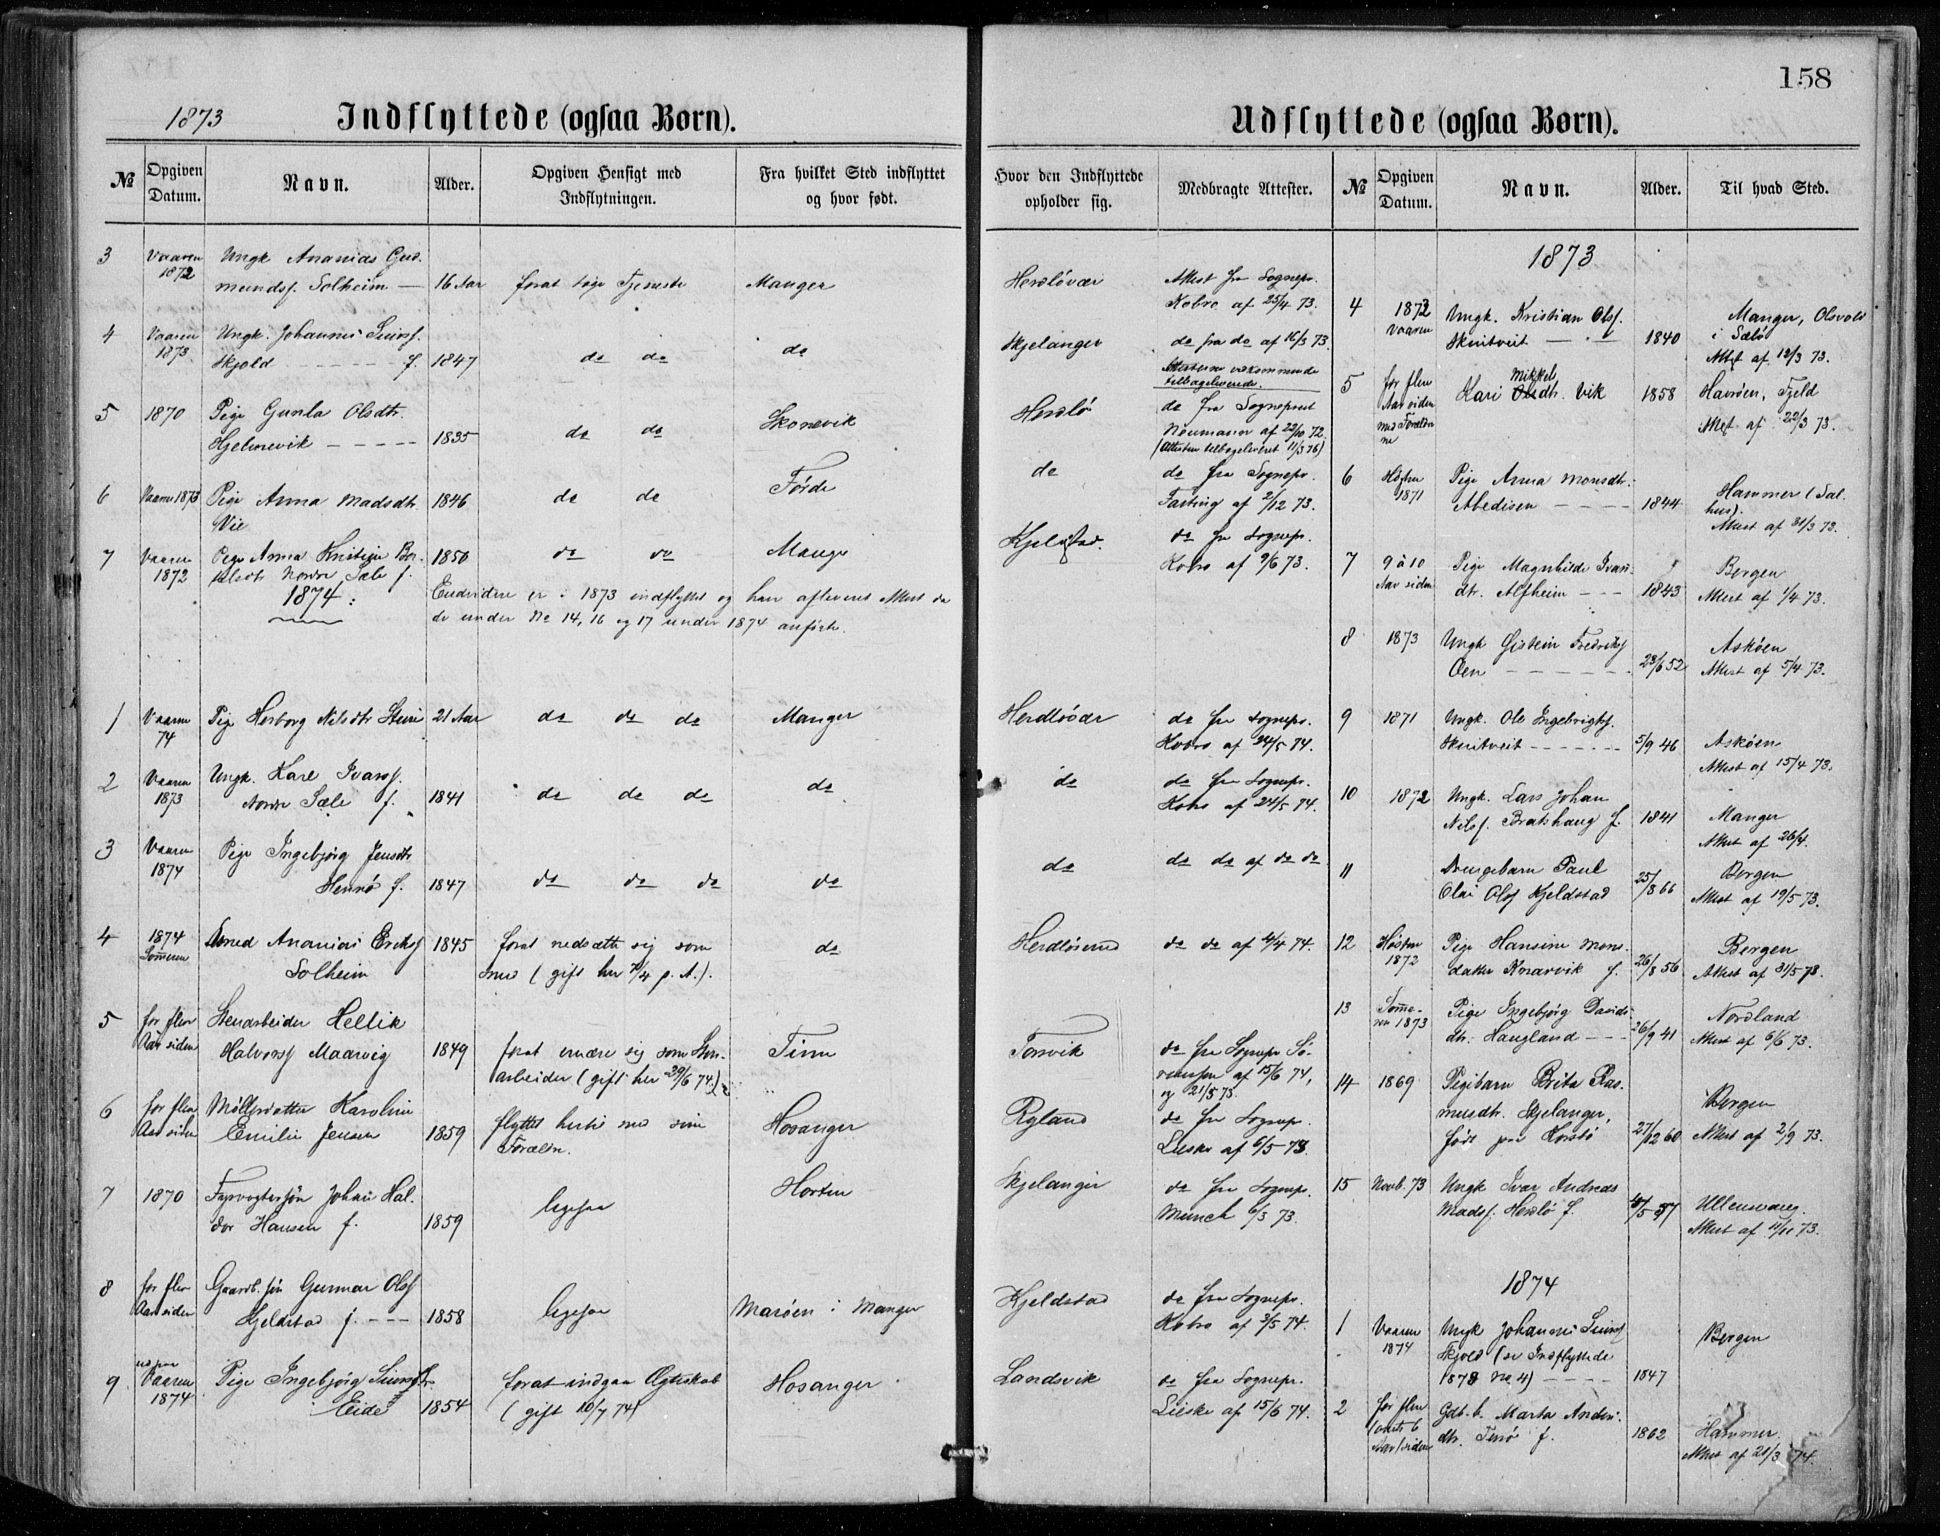 158
1873 Indflyttede (ogsaa Børn).
№ Opgiven Datum. Navn. Alder. Opgiven Hensigt med Indflytningen. Fra hvilket Sted indflyttet og hvor født.
3 Vaaren 1872 Ungk Ananias Gud-
mundsf. Solheim — 16 Aar forat søge Tjeneste Manger
4 Vaaren 1873 Ungk. Johannes
Skjold f. 1847 do do do
5 1870 Pige Gunla Olsdtr.
Hjelmevik 1835 do do Skonevik
6 Vaaren 1873 Pige Anna Madsdtr. 1846 do do Førde
Vie
7 Vaaren 1872 Pige Anna 1850 do do Mange
Nordre Sæle f.
1874 : er i 1873 indflyttet og har afleveret Attest
de under No 14, 16 og 17 under 1874 anførte.
1 Vaaren 74 Pige Herborg Nilsdtr 21 Aar do do do Manger
2 Vaaren 1873 Ungk. Karl Ivarsf.
Nordre Sæle f. 1841 do do do do
3 Vaaren 1874 Pige Ingebjørg Jensdtr
Hernø f. 1847 do do do do
4 1874 Sommeren Ananias Eriksf 1845 forat nedsætte sig som do
Solheim (gift her 7/4 p. A.).
5 for flere Aar siden Stenarbeider Hellik
Halvorsf Maarvig 1849 forat ernære sig som Sten- Tinn
arbeider (gift her 29/6 74.)
6 for flere Aar siden Møllerdatter Karoline
Emilie Jensen 1859 flyttet hertil med sine Hosanger
Forældre.
7 1870 Fyrvogtersøn Johan Hal-
dor Hansen f. 1859 ligesaa Horten
8 for flere Aar siden Gaardb. søn Gunnar Olsf
Kjeldstad f. 1858 ligesaa Marøen i Manger
9 Vaaren 1874 Pige Ingebjørg
Eide 1854 forat indgaa Ægteskab Hosanger
(gift 10/7 74)
Udflyttede (ogsaa Børn).
Hvor den Indflyttede opholder sig. Medbragte Attester. № Opgiven Datum. Navn. Alder. Til hvad Sted.
Herdløvær Attest fra Sognepr.
Kobro af 25/4 73.
Skjelanger do fra do af 16/3 73.
Attesterne vedkommende
tilbageleverede.
Herdlø do fra Sogneprest
Neumann af 22/10 72.
(Attesten tilbageleveret 11/3 76)
do do fra Sognepr.
Fasting af 2/12 73.
Kjelstad. do fra Sognepr.
Kobro af 9/6 73.
Herdlø do fra Sognepr.
Kobro af 24/5 74.
do do fra Sognepr.
Kobro af 24/5 74.
do do do af do do
do do af 4/4 74.
Torsvik do fra Sognepr Sø-
rensen af 15/6 74,
og 21/5 75.
Ryland do fra Sognepr.
af 6/5 73.
Skjelanger do fra Sognepr.
Munch 6/3 73.
Kjeldstad do fra Sognepr.
Kobro af 3/5 74.
Landsvik do fra Sognepr.
af 15/6 74.
1873
4 1872 Vaaren Ungk. Kristian Olsf. Manger, Olsvold
1840 i Sæbø
Attest af 12/3 73.
5 for flere Aar siden med Forældrene Kari Mikkelsdtr. Vik 1858 Havrøen, Fjeld
Attest af 22/3 73.
6 Høsten 1871 Pige Anna Monsdtr.
Abedisen 1844 Hammer (Sal-
hus).
Attest af 31/3 73.
7 9 à 10 Aar siden Pige Magnhilde Ivars- Bergen
dtr. Alfheim 1843 Attest af 1/4 73.
8 1873 Ungk Fredriksf Askøen
Øen 23/6 52 Attest af 5/4 73.
9 1871 Ungk. Ole Ingebrigtsf.
5/9 46 Askøen
Attest af 15/4 73.
10 1872 Ungk. Lars Johan
Nilsf. Bratshaug f. 1841 Manger
Attest af 26/4.
11 Drengebarn Paul Bergen
Olai Olsf Kjeldstad 25/8 66 Attest af 19/5 73.
12 Høsten 1872 Pige Hansine Mons- Bergen
datter Knarvik f. 26/8 56 Attest af 31/5 73.
13 Somme-
ren 1873 Pige Ingebjørg Davids- Nordland
dtr. Haugland 26/9 41 Attest af 6/6 73.
14 1869 Pigebarn Brita Ras- Bergen
musdtr. Skjelanger,
født paa 27/12 60 Attest af 2/9 73.
15 Novb. 73 Ungk Ivar Andreas
Madsf. Herdlø f. Ullensvang.
Attest af 11/11 73.
1874
1 Vaaren 1874 Ungk Johannes Bergen
Skjold (se Indflyttede
1873 No 4) 1847
2 for flere
(omtr. 6
Aar) siden Gdb. b. Marta Anders-
dtr. f. 1862 Hammer.
Attest af 21/3 74.